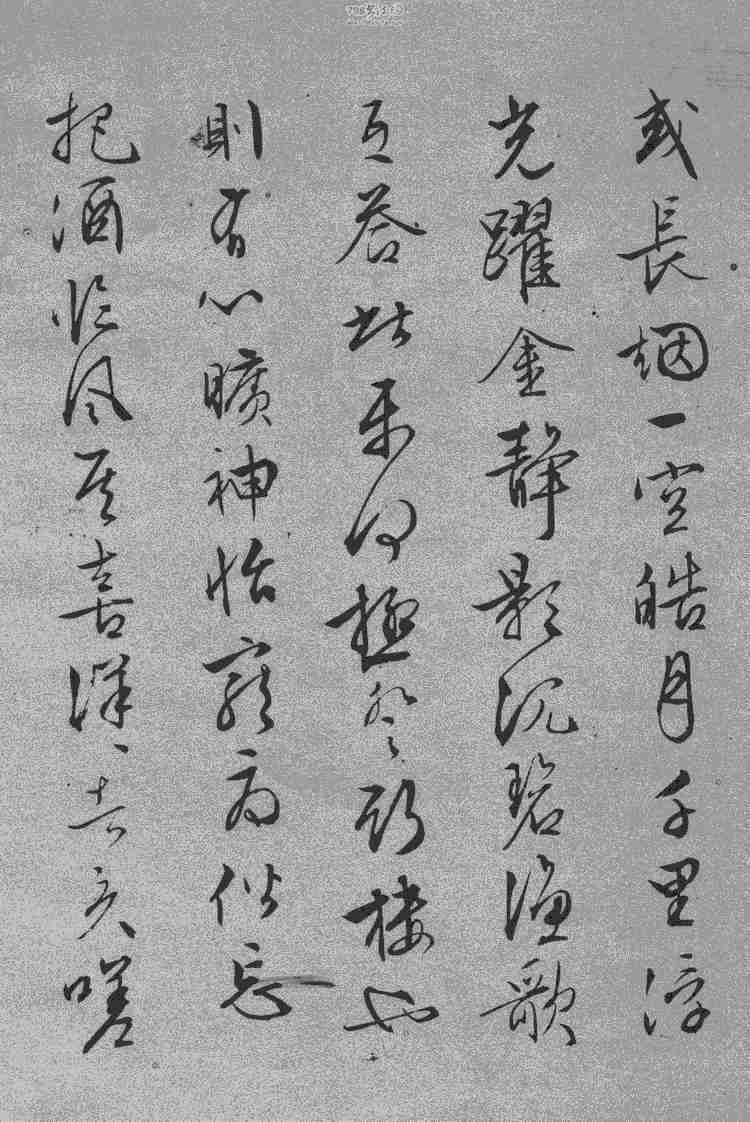 或長烟一空皓月千里浮
光躍金靜影沉碧漁歌
互答此樂何極登斯樓也
則有心曠神怡寵辱偕忘
把酒臨風其喜洋〻者矣嗟